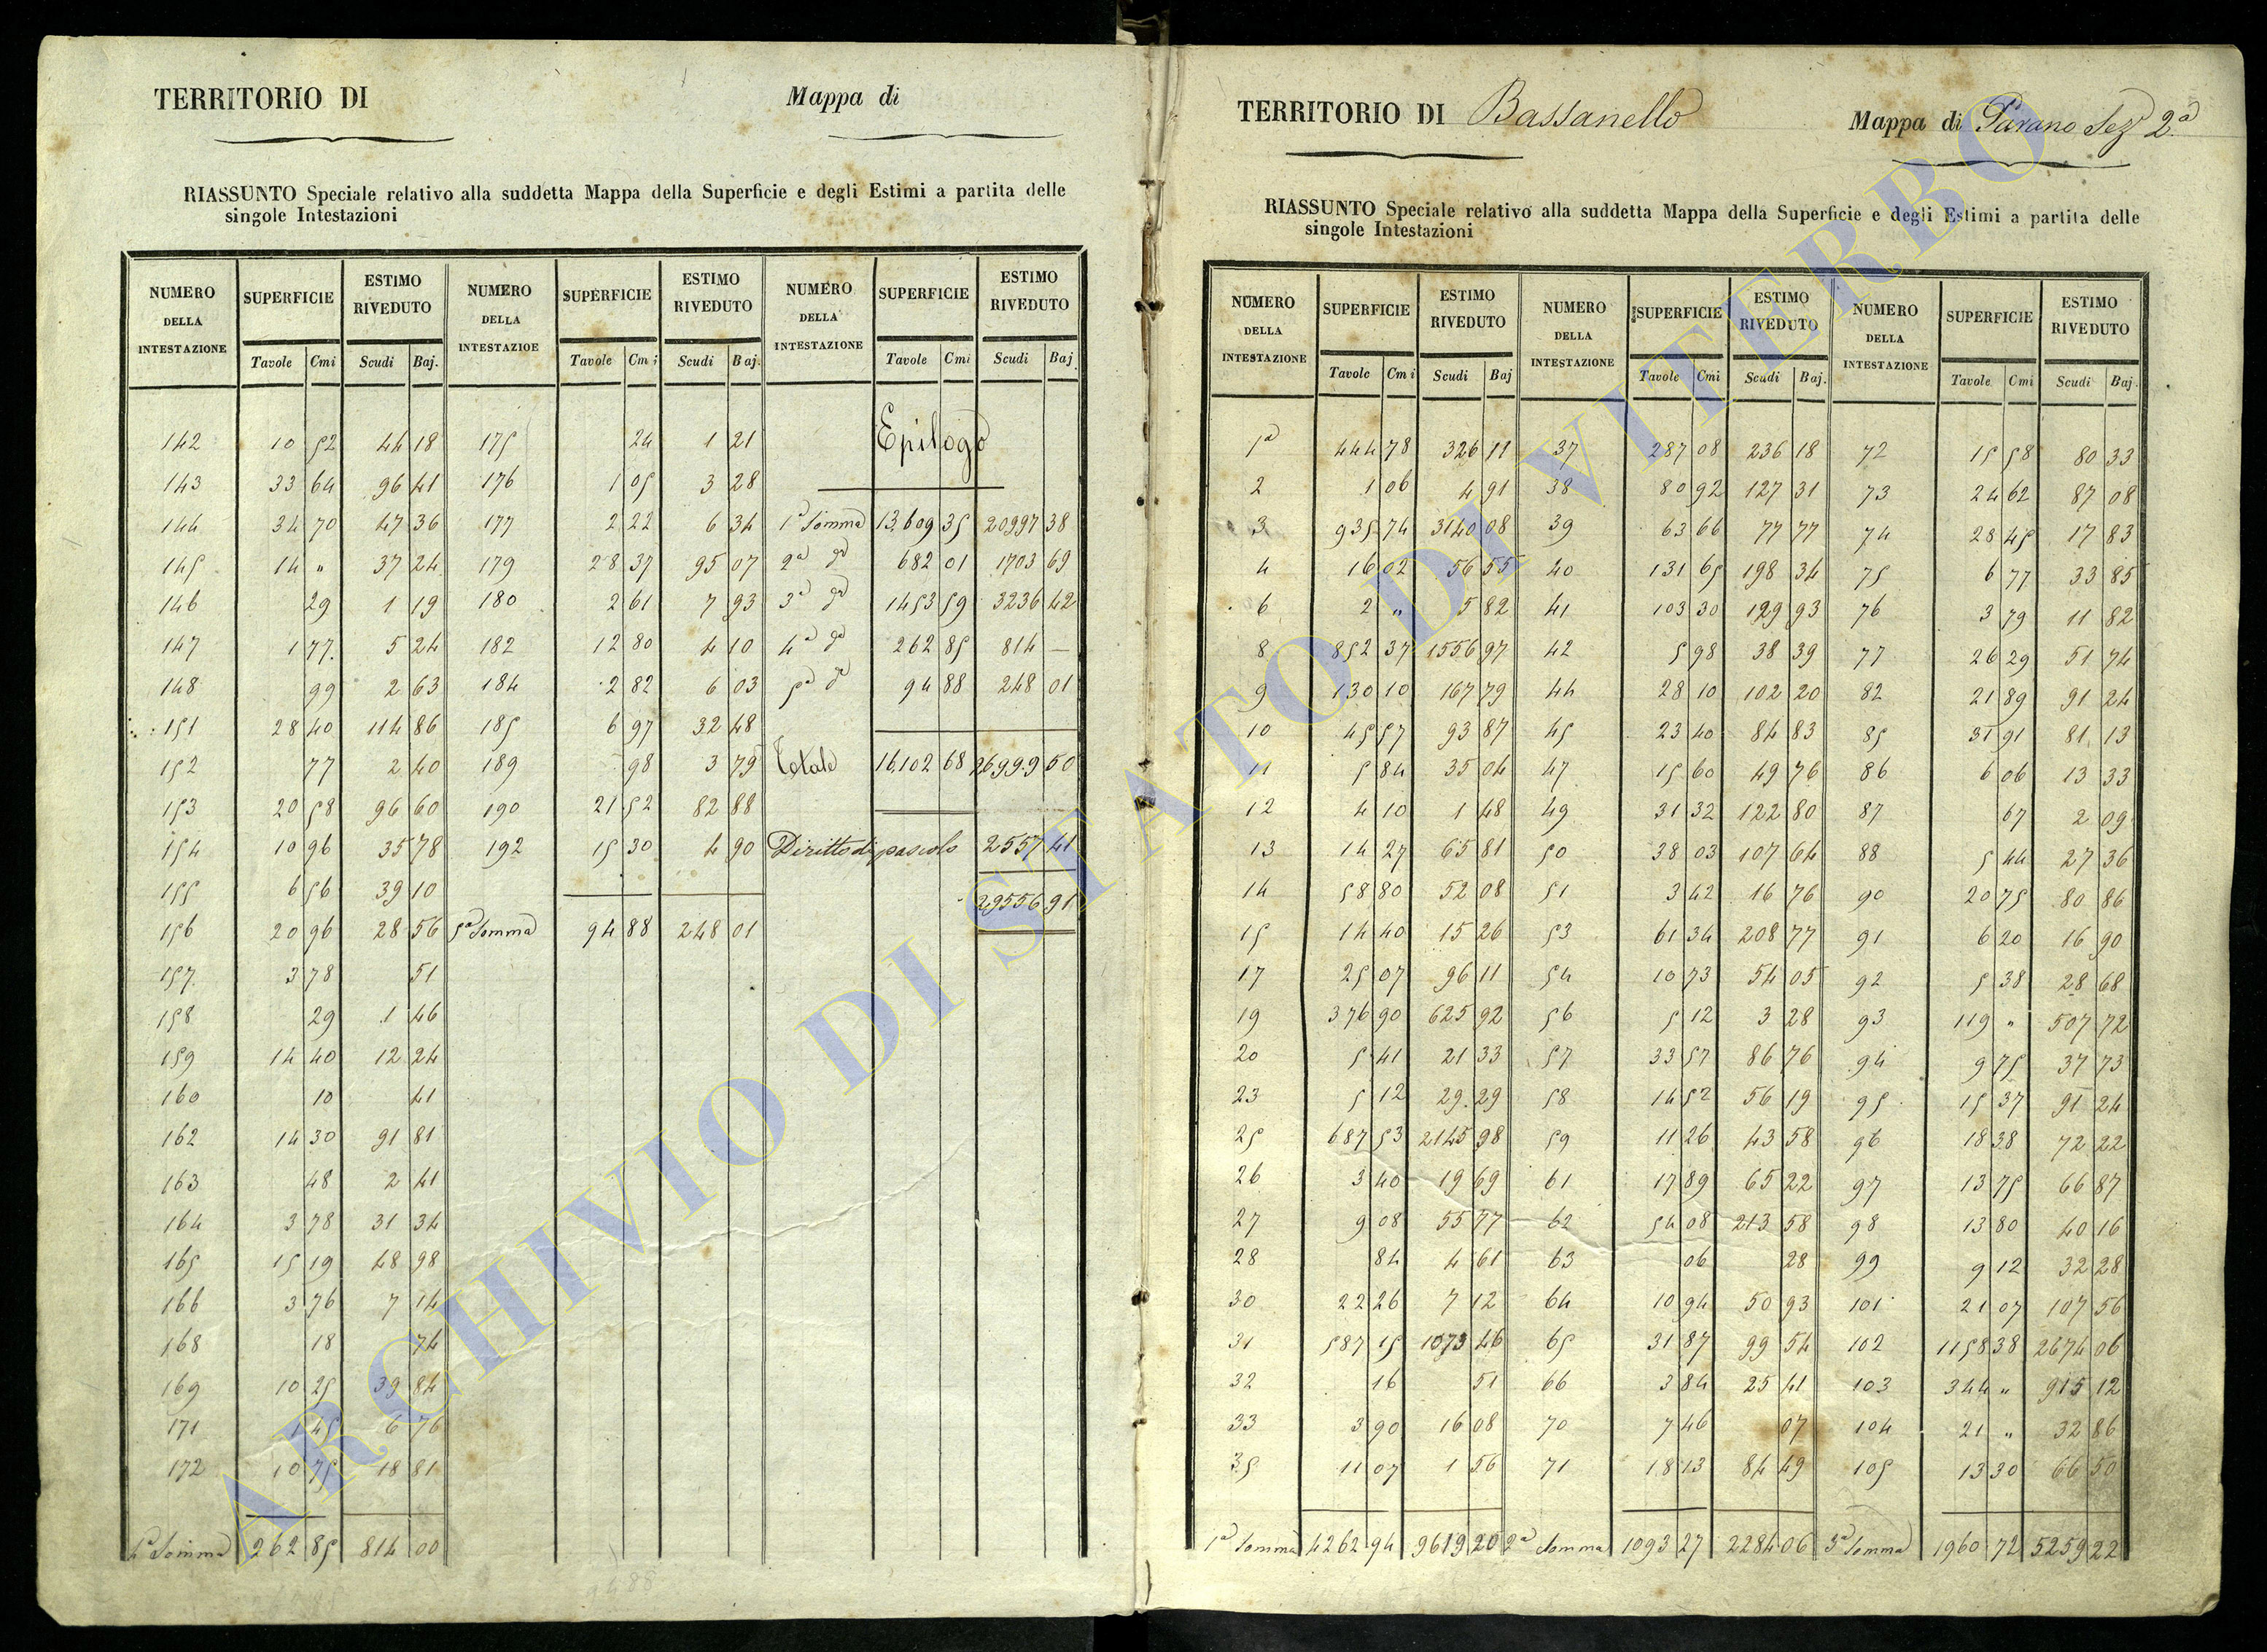 TERRITORIO DI Mappa di
RIASSUNTO Speciale relativo alla suddetta Mappa della Superficie e degli Estimi a partita delle
singole Intestazioni
NUMERO DELLA INTESTAZIONE SUPERFICIE ESTIMO RIVEDUTO NUMERO DELLA INTESTAZIOE SUPERFICIE ESTIMO RIVEDUTO NUMERO DELLA INTESTAZIONE SUPERFICIE ESTIMO RIVEDUTO
Tavole Cmi Scudi Baj. Tavole Cmi Scudi Baj. Tavole Cmi Scudi Baj.
142 10 52 44 18 175 24 1 21 Epilogo
143 33 64 96 41 176 1 05 3 28
144 34 70 47 36 177 2 22 6 34 1ª Somma 13.609 35 20997 38
145 14 " 37 24 179 28 37 95 07 2ª dª 682 01 1703 69
146 29 1 19 180 2 61 7 93 3ª dª 1453 59 3236 42
147 1 77 5 24 182 12 80 4 10 4ª dª 262 85 814 —
148 99 2 63 184 2 82 6 03 5ª dª 94 88 248 01
151 28 40 114 86 185 6 97 32 48
152 77 2 40 189 98 3 79 Totale 16,102 68 26999 50
153 20 58 96 60 190 21 52 82 88
154 10 96 35 78 192 15 30 4 90 Diritto di pascolo 2557 41
155 6 56 39 10 29556 91
156 20 96 28 56 5ª Somma 94 88 248 01
157 3 78 51
158 29 1 46
159 14 40 12 24
160 10 41
162 14 30 91 81
163 48 2 41
164 3 78 31 34
165 15 19 48 98
166 3 76 7 14
168 18 74
169 10 25 39 84
171 1 45 6 76
172 10 75 18 81
4ª Somma 262 85 814 00
TERRITORIO DI Bassanello Mappa di Parano Sez 2ª
RIASSUNTO Speciale relativo alla suddetta Mappa della Superficie e degli Estimi a partita delle
singole Intestazioni
NUMERO DELLA INTESTAZIONE SUPERFICIE ESTIMO RIVEDUTO NUMERO DELLA INTESTAZIONE SUPERFICIE ESTIMO RIVEDUTO NUMERO DELLA INTESTAZIONE SUPERFICIE ESTIMO RIVEDUTO
Tavole Cmi Scudi Baj Tavole Cmi Scudi Baj. Tavole Cmi Scudi Baj.
1ª 444 78 326 11 37 287 08 236 18 72 15 58 80 33
2 1 06 4 91 38 80 92 127 31 73 24 62 87 08
3 935 74 3140 08 39 63 66 77 77 74 28 45 17 83
4 16 02 56 55 40 131 65 198 34 75 6 77 33 85
6 2 " 5 82 41 103 30 129 93 76 3 79 11 82
8 852 37 1556 97 42 5 98 38 39 77 26 29 51 74
9 130 10 167 79 44 28 10 102 20 82 21 89 91 24
10 45 57 93 87 45 23 40 84 83 85 31 91 81 13
11 5 84 35 04 47 15 60 49 76 86 6 06 13 33
12 4 10 1 48 49 31 32 122 80 87 67 2 09
13 14 27 65 81 50 38 03 107 64 88 5 44 27 36
14 58 80 52 08 51 3 42 16 76 90 20 75 80 86
15 14 40 15 26 53 61 34 208 77 91 6 20 16 90
17 25 07 96 11 54 10 73 54 05 92 5 38 28 68
19 376 90 625 92 56 5 12 3 28 93 119 " 507 72
20 5 41 21 33 57 33 57 86 76 94 9 75 37 73
23 5 12 29 29 58 14 52 56 19 95 15 37 91 24
25 687 53 2145 98 59 11 26 43 58 96 18 38 72 22
26 3 40 19 69 61 17 89 65 22 97 13 75 66 87
27 9 08 55 77 62 54 08 213 58 98 13 80 40 16
28 84 4 61 63 06 28 99 9 12 32 28
30 22 26 7 12 64 10 94 50 93 101 21 07 107 56
31 587 15 1073 46 65 31 87 99 54 102 1158 38 2674 06
32 16 51 66 3 84 25 41 103 344 " 915 12
33 3 90 16 08 70 7 46 07 104 21 " 32 86
35 11 07 1 56 71 18 13 84 49 105 13 30 66 50
1ª Somma 4262 94 9619 20 2ª Somma 1093 27 2284 06 3ª Somma 1960 72 5259 22
ARCHIVIO DI STATO DI VITERBO